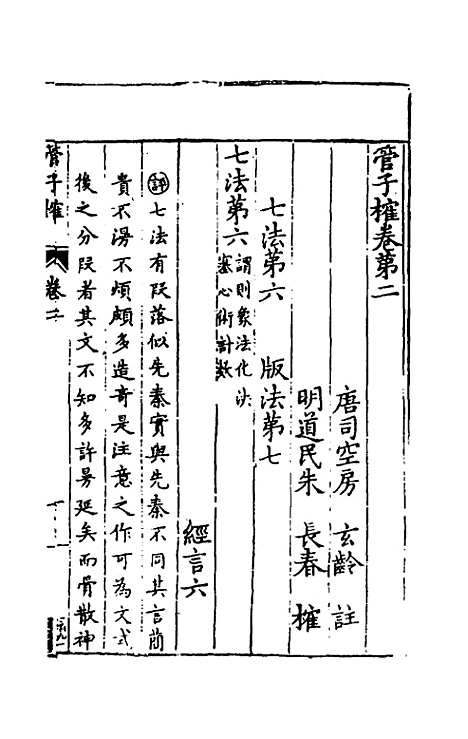 管子榷卷第二
唐司空房 玄齡 註
明道民朱 長春 榷
七法第六 版法第七
七法第六 謂則象法化決
塞心術計數
經言六
評七法有段落似先秦實與先秦不同其言簡
貴不湯不煩頗多造奇是注意之作可為文式
後之分段者其文不知多許曼延矣而骨散神
管子榷 卷二 一